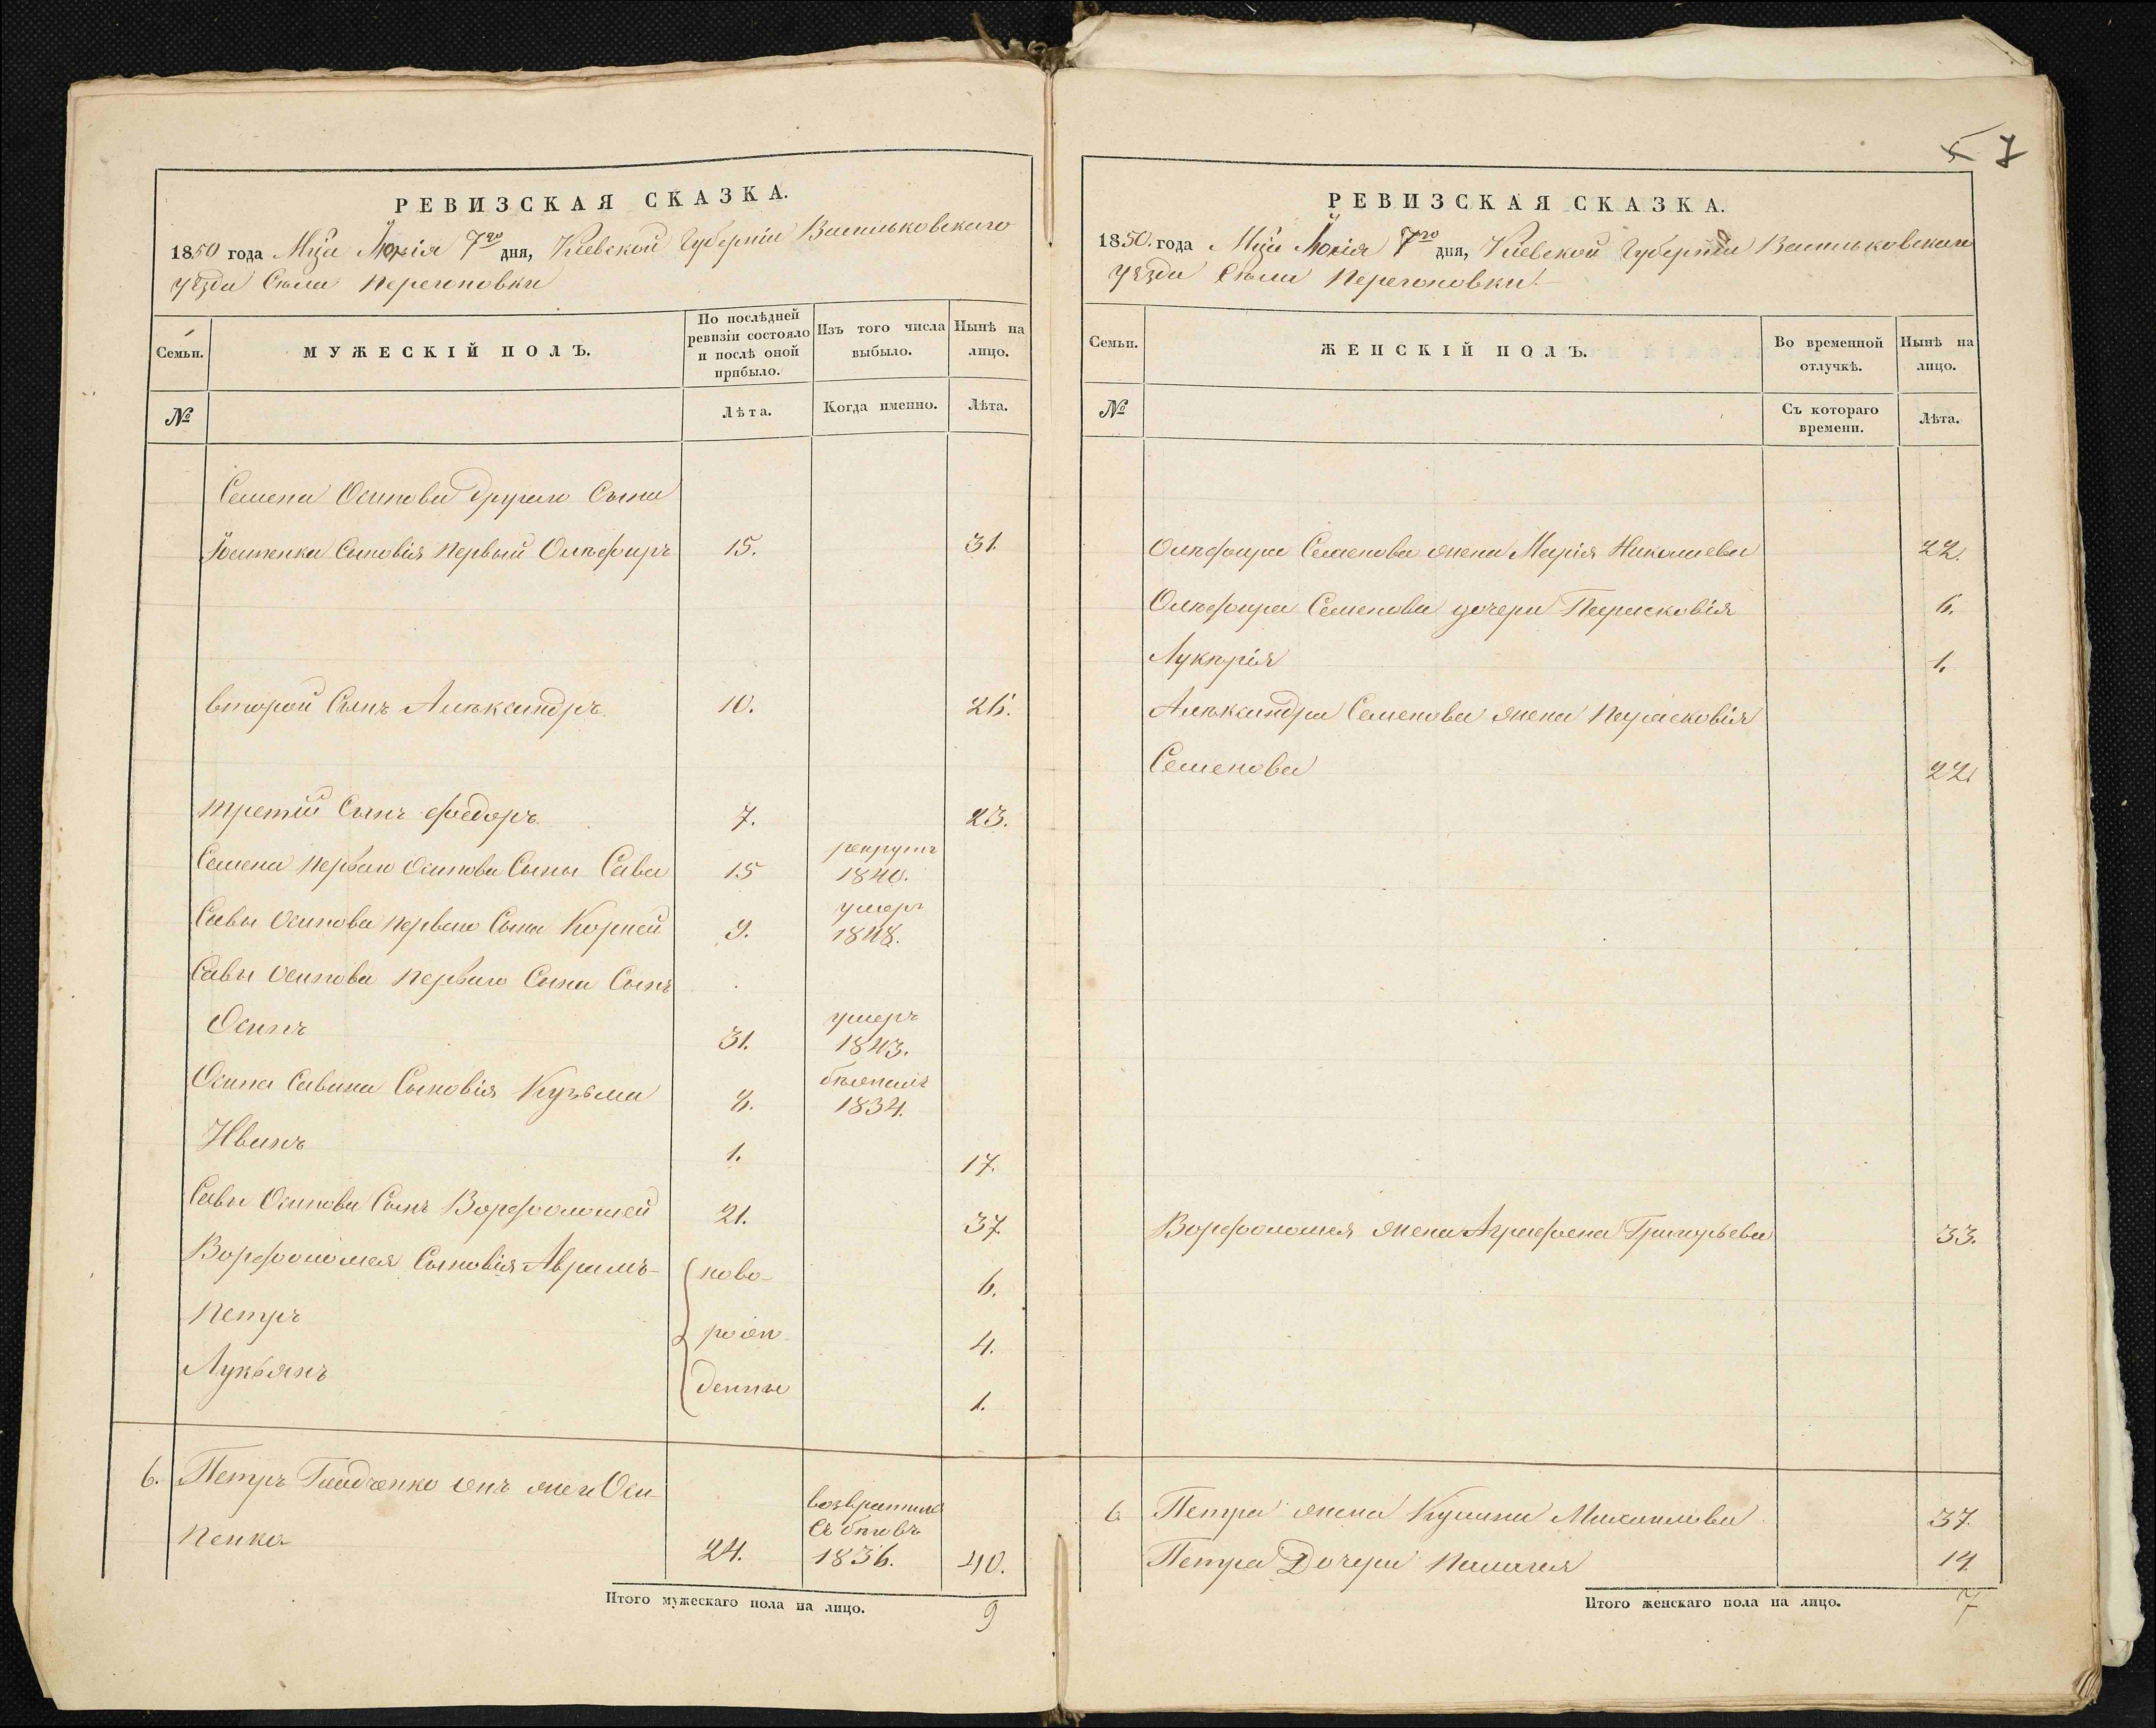 5 7
РЕВИЗСКАЯ СКАЗКА.
1850 года Мца Юнія 7го дня, Кіевской Губерніи Васильковскаго
уѣзда Села Перегоновки
Семьи.
МУЖЕСКІЙ ПОЛЪ.
По послѣдней ревизіи состояло и послѣ оной прибыло.
Изъ того числа выбыло.
Нынѣ на лицо.
№
Лѣта.
Когда именно.
Лѣта.
Семена Осипова другаго Сына
Сыновія первый Олѣфиръ 15. 31.
второй Сынъ Алѣксандръ 10. 26.
третій Сынъ Федоръ 7. 23.
Семена перваго Осипова Сына Сава 15 рекрутъ 1840.
Савы Осипова перваго Сына Корней 9. умеръ 1848.
Савы Осипова перваго Сына Сынъ
Осипъ 31. умеръ 1843.
Осипа Савина Сыновія Кузьма 8. бѣжалъ 1834.
Иванъ 1. 17.
Савы Осипова Сынъ Ворфоломей 21. 37.
Ворфоломея Сыновія Аврамъ ново- 6.
Петръ рож 4.
Лукьянъ денны 1.
6. Петръ Гладченко онъ же и Оси-
пенко 24. возвратился съ бѣговъ 1836. 40.
Итого мужескаго пола на лицо. 9
РЕВИЗСКАЯ СКАЗКА.
1850. года Мца Юнія 7го дня, Кіевской Губерніи Васильковскаго
уѣзда Села Перегоновки.
Семьи.
ЖЕНСКІЙ ПОЛЪ.
Во временной отлучкѣ.
Нынѣ на лицо.
№
Съ котораго времени.
Лѣта.
Олѣфира Семенова жена Марія Николаева 22.
Олѣфира Семенова дочери Парасковія 6.
Лукѣрія 1.
Алѣксандра Семенова жена Парасковія
Семенова 22.
Ворфоломея жена Аграфена Григорьева 33.
6 Петра жена Кулина Михаилова 37.
Петра Дочери Палагея 14.
Итого женскаго пола на лицо. 7